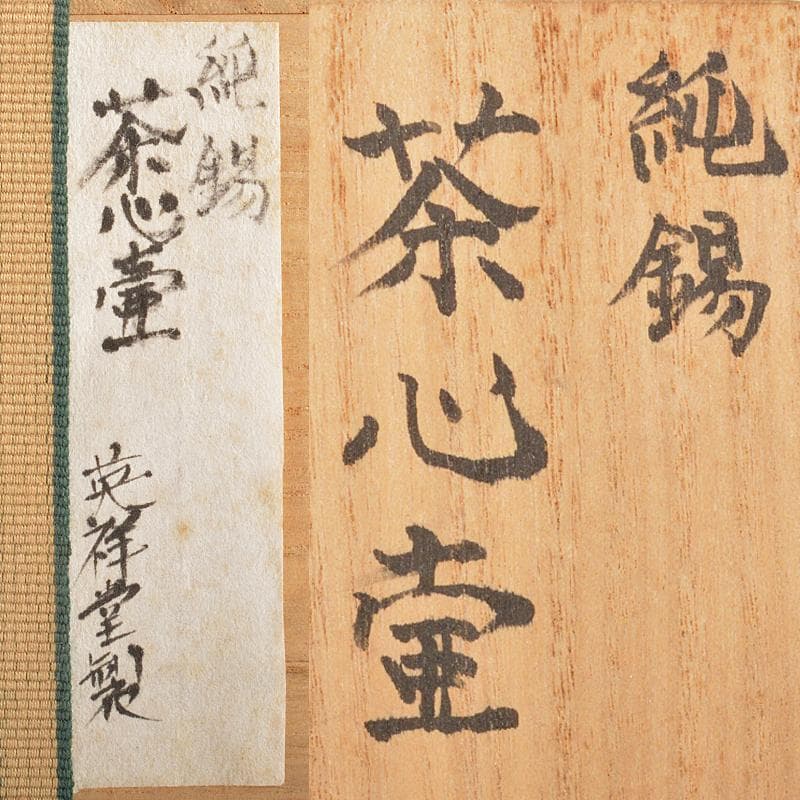 純錫
茶心壷
英祥堂製
純錫
茶心壷